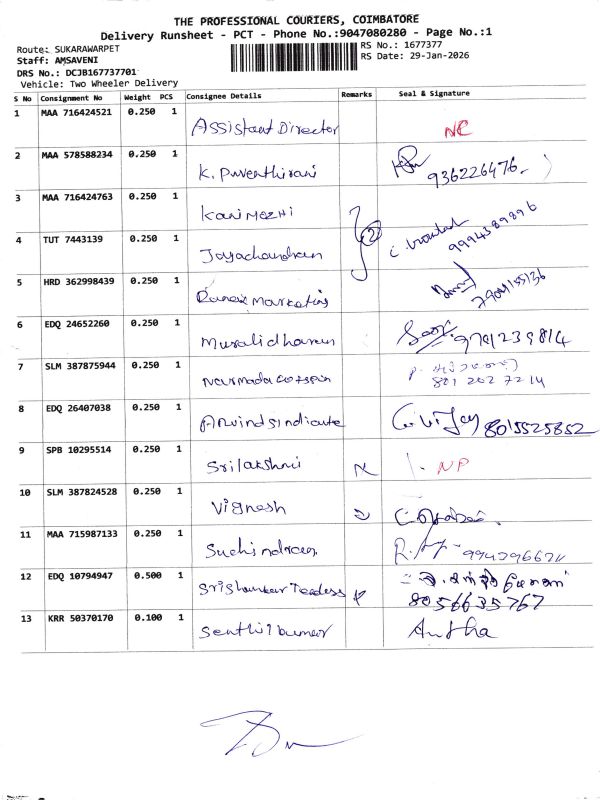 THE PROFESSIONAL COURIERS, COIMBATORE
Delivery Runsheet - PCT - Phone No.:9047080280 - Page No.:1
Route: SUKARAWARPET
RS No.: 1677377
Staff: AMSAVENI
RS Date: 29-Jan-2026
DRS No.: DCJB167737701
Vehicle: Two Wheeler Delivery
S No Consignment No Weight PCS Consignee Details Remarks Seal & Signature
1 MAA 716424521 0.250 1 Assistant Director NC
2 MAA 578588234 0.250 1 K. Puventhirani 936226476
3 MAA 716424763 0.250 1 Kani Mezhi
4 TUT 7443139 0.250 1 Jayachandran 2 9994389896
5 HRD 362998439 0.250 1 Marketing
6 EDQ 24652260 0.250 1 Muralidharan
7 SLM 387875944 0.250 1 Narmada cotspin 801 202 7214
8 EDQ 26407038 0.250 1 Arvind sindicate 8015525852
9 SPB 10295514 0.250 1 Srilakshmi NP
10 SLM 387824528 0.250 1 Vignesh
11 MAA 715987133 0.250 1 Suchindran
12 EDQ 10794947 0.500 1 8056635767
13 KRR 50370170 0.100 1 Senthil kumar Antha